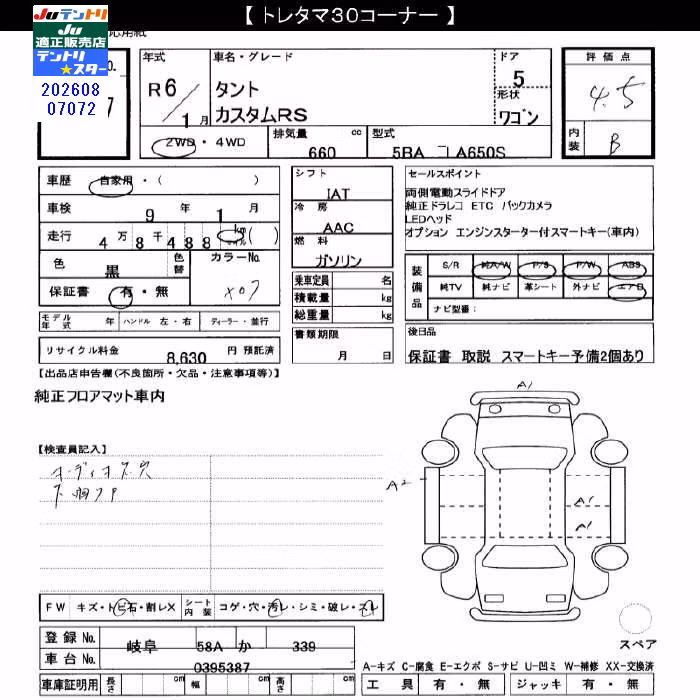 【 トレタマ30コーナー 】
Juテントリ
Ju
適正販売店
テントリ
★スター
202608
07072
年式
R6/1月
車名・グレード
タント
カスタムRS
ドア
5
形状
ワゴン
評価点
4.5
内装
B
2WD・4WD
排気量
660 cc
型式
5BA LA650S
車歴 自家用・( )
車検 9年 1月
走行 4万8千488 km
色 黒
色替
カラーNo. X07
保証書 有・無
モデル年式 年
ハンドル 左・右
ディーラー・並行
リサイクル料金 8,630 円 預託済
シフト
IAT
冷房
AAC
燃料
ガソリン
乗車定員 名
積載量 kg
総重量 kg
書類期限
月 日
セールスポイント
両側電動スライドドア
純正ドラレコ ETC バックカメラ
LEDヘッド
オプション エンジンスターター付スマートキー(車内)
装備品
S/R 純A/W P/S P/W ABS
純TV 純ナビ 革シート 外ナビ エアB
ナビ型番:
後日品
保証書 取説 スマートキー予備2個あり
【出品店申告欄(不良箇所・欠品・注意事項等)】
純正フロアマット車内
【検査員記入】
オーディオスペ穴
A1
A2
A1
A1
FW キズ・トビ石・割レX
シート内装 コゲ・穴・汚レ・シミ・破レ・スレ
登録No. 岐阜 58A か 339
車台No. 0395387
車庫証明用 長さ cm 幅 cm 高さ cm
スペア
A-キズ C-腐食 E-エクボ S-サビ U-凹ミ W-補修 XX-交換済
工具 有・無 ジャッキ 有・無